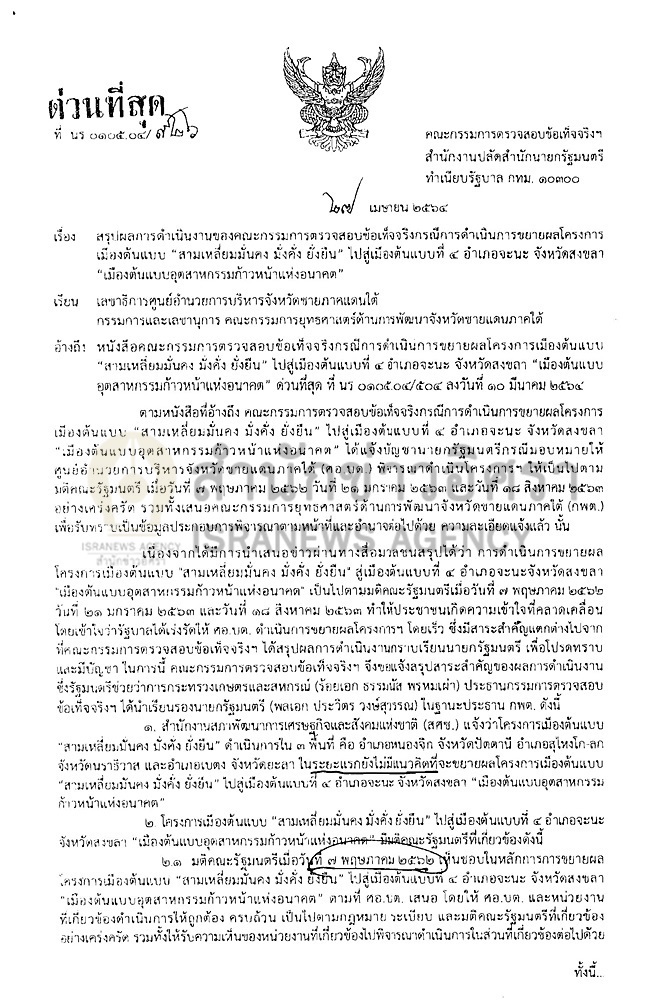 ด่วนที่สุด
ที่ นร ๐๑๐๕.๐๔/๙๒๖
คณะกรรมการตรวจสอบข้อเท็จจริงฯ
สำนักงานปลัดสำนักนายกรัฐมนตรี
ทำเนียบรัฐบาล กทม. ๑๐๓๐๐
๒๗ เมษายน ๒๕๖๔
เรื่อง สรุปผลการดำเนินงานของคณะกรรมการตรวจสอบข้อเท็จจริงกรณีการดำเนินการขยายผลโครงการ
เมืองต้นแบบ “สามเหลี่ยมมั่นคง มั่งคั่ง ยั่งยืน” ไปสู่เมืองต้นแบบที่ ๔ อำเภอจะนะ จังหวัดสงขลา
“เมืองต้นแบบอุตสาหกรรมก้าวหน้าแห่งอนาคต”
เรียน เลขาธิการศูนย์อำนวยการบริหารจังหวัดชายภาคแดนใต้
กรรมการและเลขานุการ คณะกรรมการยุทธศาสตร์ด้านการพัฒนาจังหวัดชายแดนภาคใต้
อ้างถึง หนังสือคณะกรรมการตรวจสอบข้อเท็จจริงกรณีการดำเนินการขยายผลโครงการเมืองต้นแบบ
“สามเหลี่ยมมั่นคง มั่งคั่ง ยั่งยืน” ไปสู่เมืองต้นแบบที่ ๔ อำเภอจะนะ จังหวัดสงขลา “เมืองต้นแบบ
อุตสาหกรรมก้าวหน้าแห่งอนาคต” ด่วนที่สุด ที่ นร ๐๑๐๕.๐๔/๕๐๔ ลงวันที่ ๑๐ มีนาคม ๒๕๖๔
ตามหนังสือที่อ้างถึง คณะกรรมการตรวจสอบข้อเท็จจริงกรณีการดำเนินการขยายผลโครงการ
เมืองต้นแบบ “สามเหลี่ยมมั่นคง มั่งคั่ง ยั่งยืน” ไปสู่เมืองต้นแบบที่ ๔ อำเภอจะนะ จังหวัดสงขลา
“เมืองต้นแบบอุตสาหกรรมก้าวหน้าแห่งอนาคต” ได้แจ้งบัญชานายกรัฐมนตรีกรณีมอบหมายให้
ศูนย์อำนวยการบริหารจังหวัดชายแดนภาคใต้ (ศอ.บต.) พิจารณาดำเนินโครงการฯ ให้เป็นไปตาม
มติคณะรัฐมนตรี เมื่อวันที่ ๗ พฤษภาคม ๒๕๖๒ วันที่ ๒๑ มกราคม ๒๕๖๓ และวันที่ ๑๘ สิงหาคม ๒๕๖๓
อย่างเคร่งครัด รวมทั้งเสนอคณะกรรมการยุทธศาสตร์ด้านการพัฒนาจังหวัดชายแดนภาคใต้ (กพต.)
เพื่อรับทราบเป็นข้อมูลประกอบการพิจารณาตามหน้าที่และอำนาจต่อไปด้วย ความละเอียดแจ้งแล้ว นั้น
สำนักข่าวอิศรา
ISRANEWS AGENCY
เนื่องจากได้มีการนำเสนอข่าวผ่านทางสื่อมวลชนสรุปได้ว่า การดำเนินการขยายผล
โครงการเมืองต้นแบบ “สามเหลี่ยมมั่นคง มั่งคั่ง ยั่งยืน” สู่เมืองต้นแบบที่ ๔ อำเภอจะนะจังหวัดสงขลา
“เมืองต้นแบบอุตสาหกรรมก้าวหน้าแห่งอนาคต” เป็นไปตามมติคณะรัฐมนตรีเมื่อวันที่ ๗ พฤษภาคม ๒๕๖๒
วันที่ ๒๑ มกราคม ๒๕๖๓ และวันที่ ๑๘ สิงหาคม ๒๕๖๓ ทำให้ประชาชนเกิดความเข้าใจที่คลาดเคลื่อน
โดยเข้าใจว่ารัฐบาลได้เร่งรัดให้ ศอ.บต. ดำเนินการขยายผลโครงการฯ โดยเร็ว ซึ่งมีสาระสำคัญแตกต่างไปจาก
ที่คณะกรรมการตรวจสอบข้อเท็จจริงฯ ได้สรุปผลการดำเนินงานกราบเรียนนายกรัฐมนตรี เพื่อโปรดทราบ
และมีบัญชา ในการนี้ คณะกรรมการตรวจสอบข้อเท็จจริงฯ จึงขอแจ้งสรุปสาระสำคัญของผลการดำเนินงาน
ซึ่งรัฐมนตรีช่วยว่าการกระทรวงเกษตรและสหกรณ์ (ร้อยเอก ธรรมนัส พรหมเผ่า) ประธานกรรมการตรวจสอบ
ข้อเท็จจริงฯ ได้นำเรียนรองนายกรัฐมนตรี (พลเอก ประวิตร วงษ์สุวรรณ) ในฐานะประธาน กพต. ดังนี้
๑. สำนักงานสภาพัฒนาการเศรษฐกิจและสังคมแห่งชาติ (สศช.) แจ้งว่าโครงการเมืองต้นแบบ
“สามเหลี่ยมมั่นคง มั่งคั่ง ยั่งยืน” ดำเนินการใน ๓ พื้นที่ คือ อำเภอหนองจิก จังหวัดปัตตานี อำเภอสุไหงโก-ลก
จังหวัดนราธิวาส และอำเภอเบตง จังหวัดยะลา ในระยะแรกยังไม่มีแนวคิดที่จะขยายผลโครงการเมืองต้นแบบ
“สามเหลี่ยมมั่นคง มั่งคั่ง ยั่งยืน” ไปสู่เมืองต้นแบบที่ ๔ อำเภอจะนะ จังหวัดสงขลา “เมืองต้นแบบอุตสาหกรรม
ก้าวหน้าแห่งอนาคต”
๒. โครงการเมืองต้นแบบ “สามเหลี่ยมมั่นคง มั่งคั่ง ยั่งยืน” ไปสู่เมืองต้นแบบที่ ๔ อำเภอจะนะ
จังหวัดสงขลา “เมืองต้นแบบอุตสาหกรรมก้าวหน้าแห่งอนาคต” มีมติคณะรัฐมนตรีที่เกี่ยวข้องดังนี้
๒.๑ มติคณะรัฐมนตรีเมื่อวันที่ ๗ พฤษภาคม ๒๕๖๒ เห็นชอบในหลักการการขยายผล
โครงการเมืองต้นแบบ “สามเหลี่ยมมั่นคง มั่งคั่ง ยั่งยืน” ไปสู่เมืองต้นแบบที่ ๔ อำเภอจะนะ จังหวัดสงขลา
“เมืองต้นแบบอุตสาหกรรมก้าวหน้าแห่งอนาคต” ตามที่ ศอ.บต. เสนอ โดยให้ ศอ.บต. และหน่วยงาน
ที่เกี่ยวข้องดำเนินการให้ถูกต้อง ครบถ้วน เป็นไปตามกฎหมาย ระเบียบ และมติคณะรัฐมนตรีที่เกี่ยวข้อง
อย่างเคร่งครัด รวมทั้งให้รับความเห็นของหน่วยงานที่เกี่ยวข้องไปพิจารณาดำเนินการในส่วนที่เกี่ยวข้องต่อไปด้วย
ทั้งนี้...